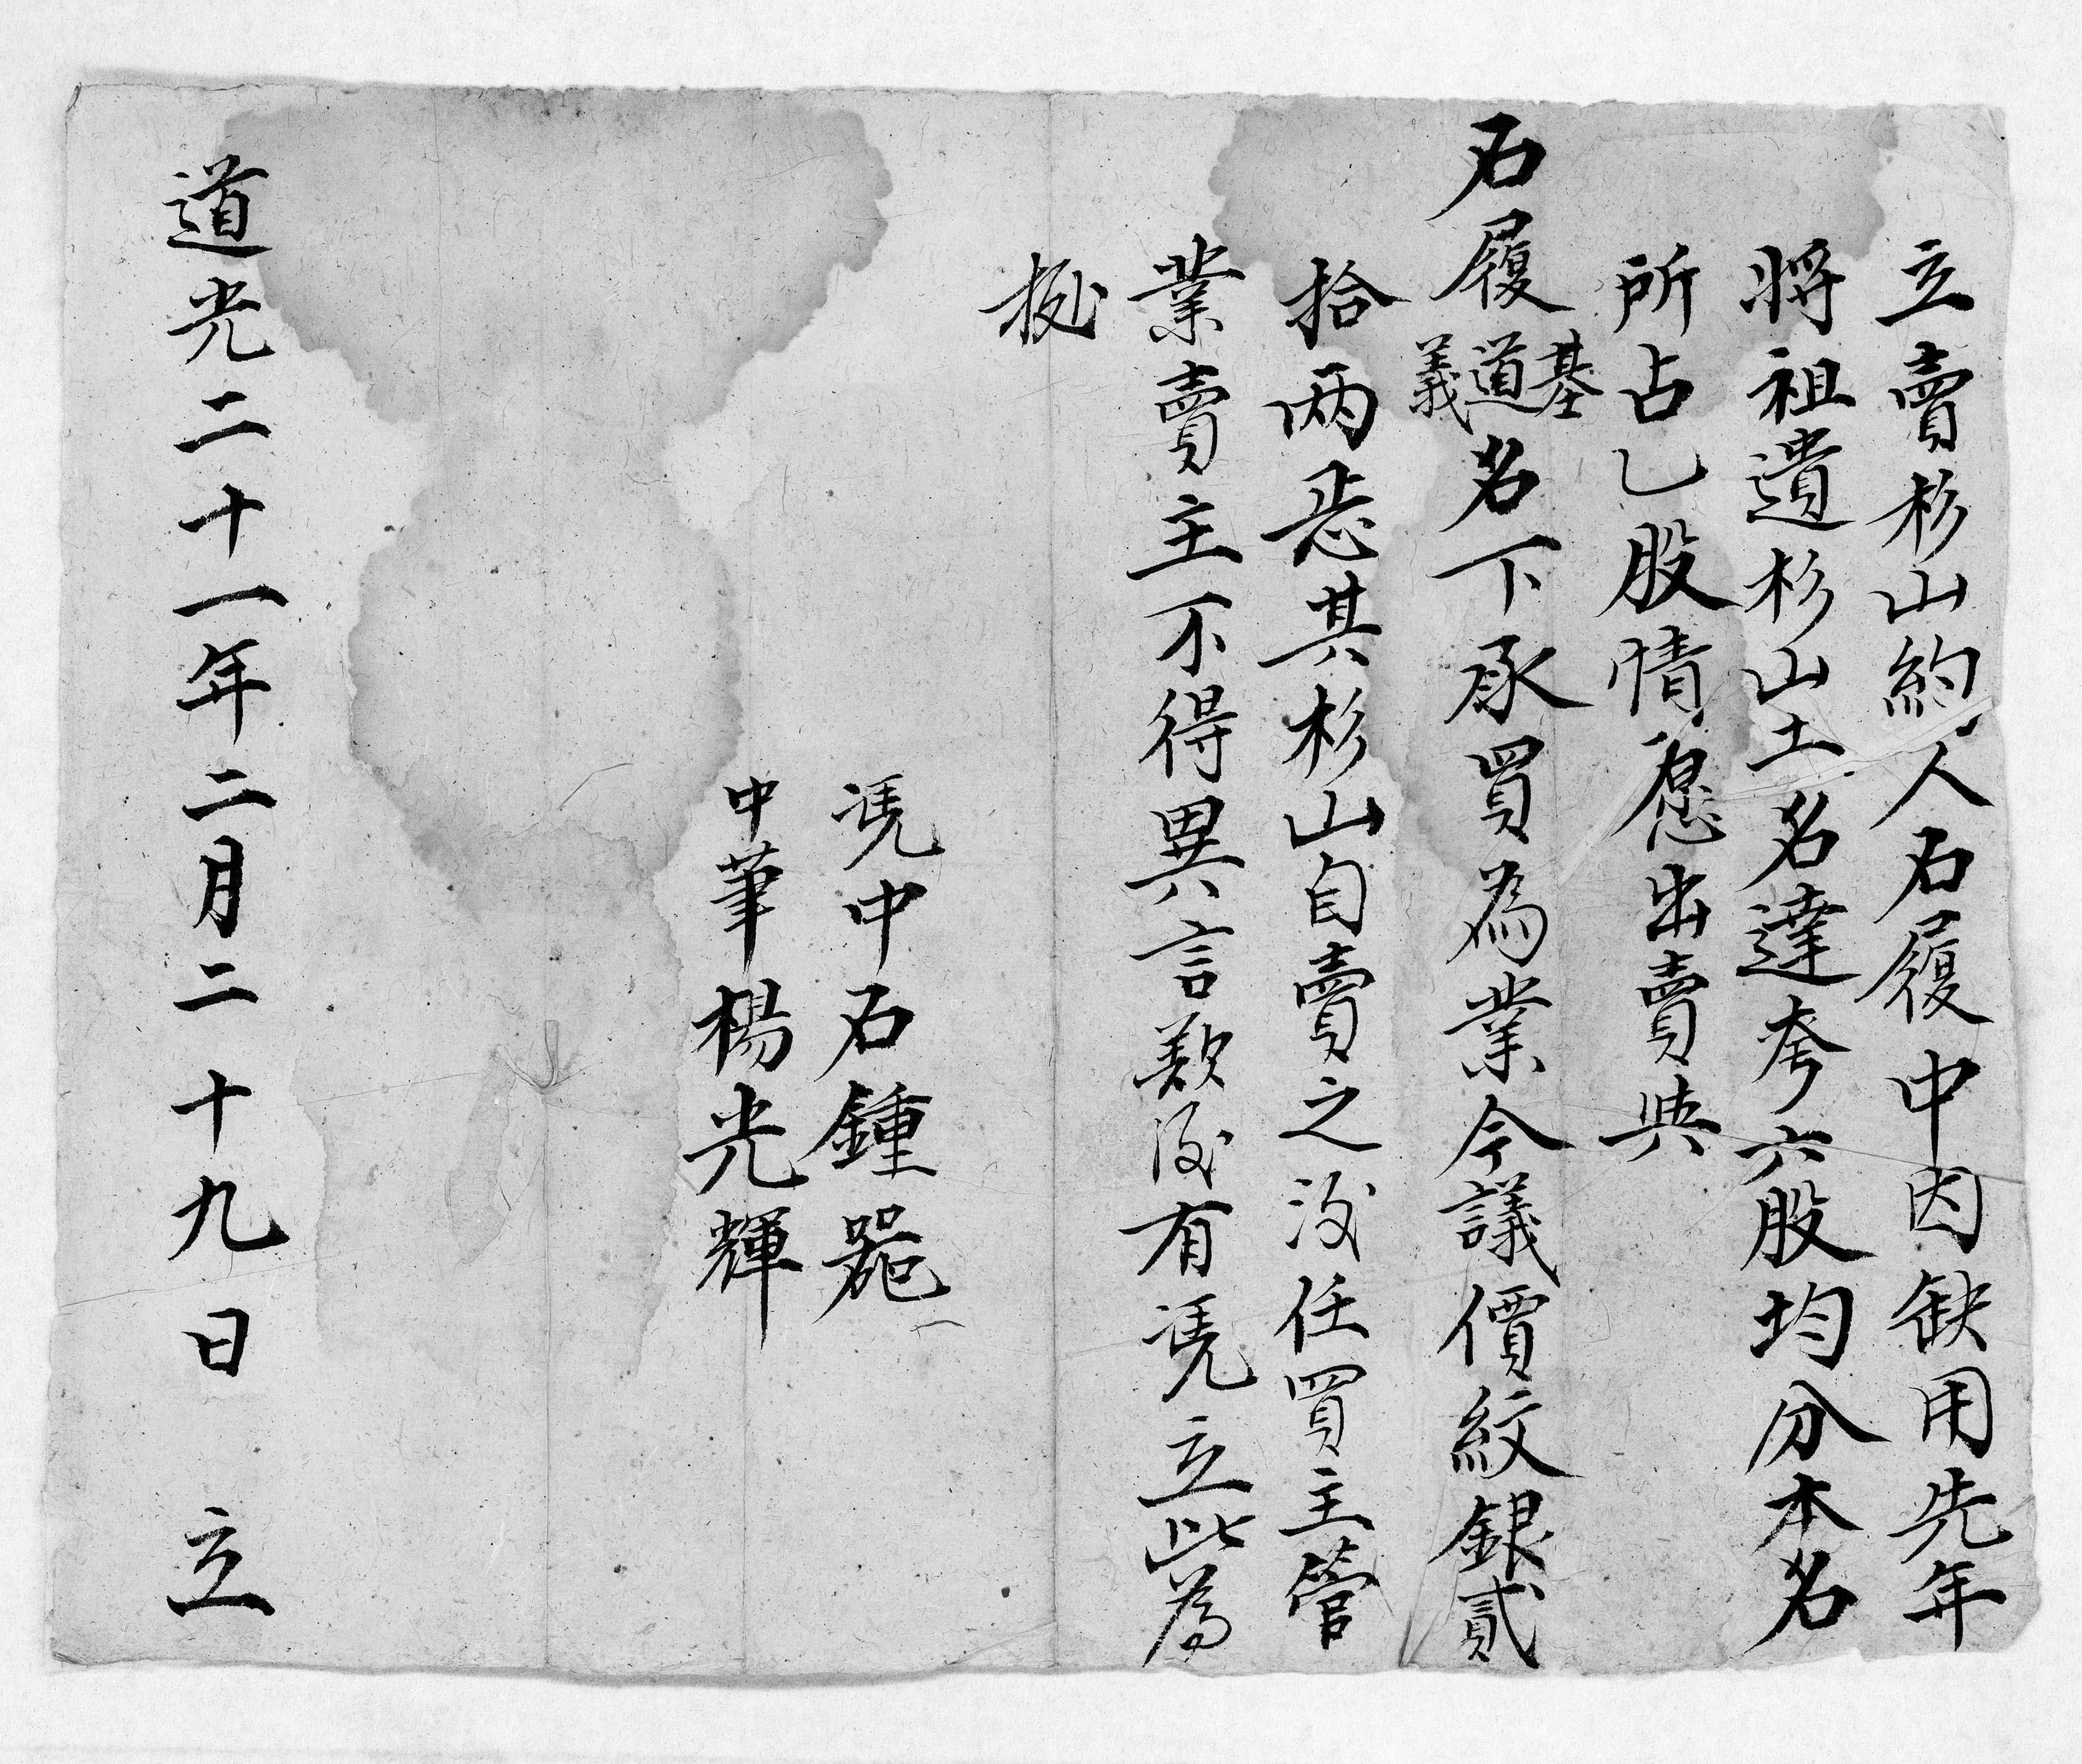 立賣杉山約人石履中因缺用先年
將祖遺杉山土名達夸六股均分本名
所占乙股情愿出賣與
石履基道義名下承買為業今議價紋銀貳
拾两悉其杉山自賣之後任買主管
業賣主不得異言欺後有凭立此為
拠
凭中石鍾器
中筆楊光輝
道光二十一年二月二十九日 立